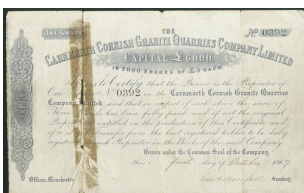 ONE SHARE
THE
No 0392
CARNMARTH CORNISH GRANITE QUARRIES COMPANY LIMITED
CAPITAL £6000
IN 2000 SHARES OF £3 EACH.
This is to Certify that the Bearer is the Proprietor of
One No 0392 in the Carnmarth Cornish Granite Quarries
Company, Limited and that in respect of each share the sum of
Three has been fully paid and if not the original
is entitled to the production of this Certificate and
of a transfer from the last registered holder to be duly
registered in the Books of the said company
Given under the Common Seal of the Company
this day of October 1867
Offices, Manchester
Secretary